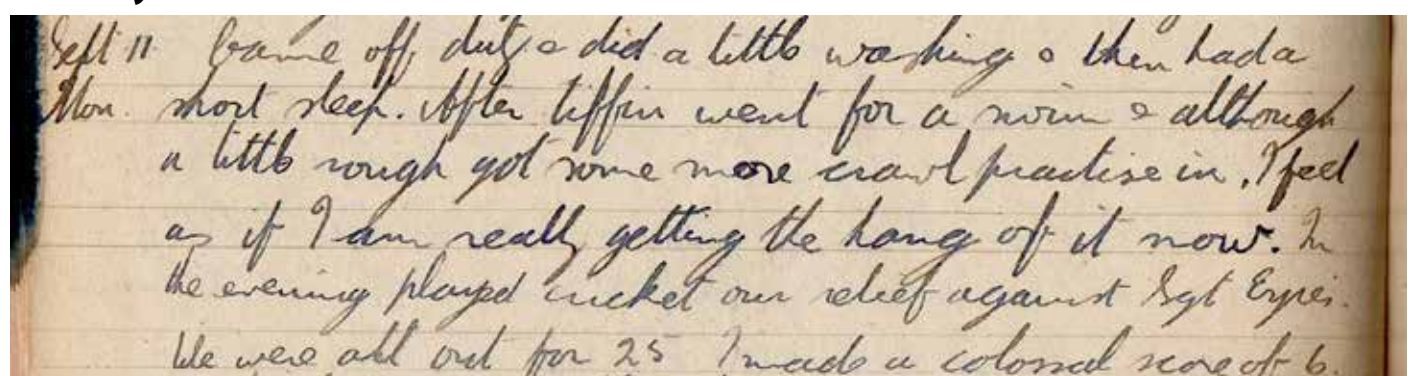 Sept 11 Came off duty & did a little washing & then had a
Mon. short sleep. After tiffin went for a swim & although
a little rough got some more crawl practise in. I feel
as if I am really getting the hang of it now. In
the evening played cricket our relief against Sgt Eyres.
We were all out for 25 I made a colossal score of 6.